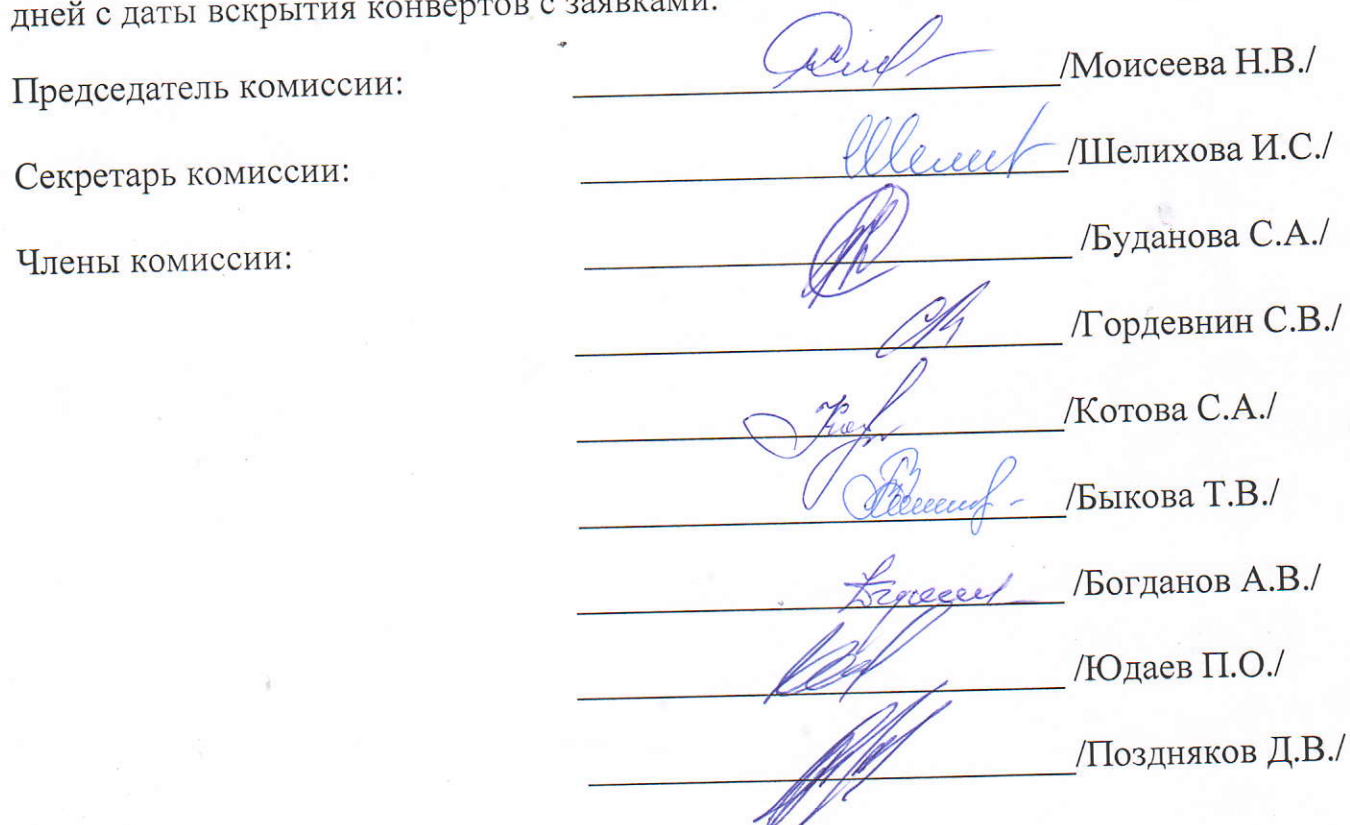 дней с даты вскрытия конвертов с заявками.
Председатель комиссии: /Моисеева Н.В./
Секретарь комиссии: /Шелихова И.С./
Члены комиссии: /Буданова С.А./
/Гордевнин С.В./
/Котова С.А./
/Быкова Т.В./
/Богданов А.В./
/Юдаев П.О./
/Поздняков Д.В./